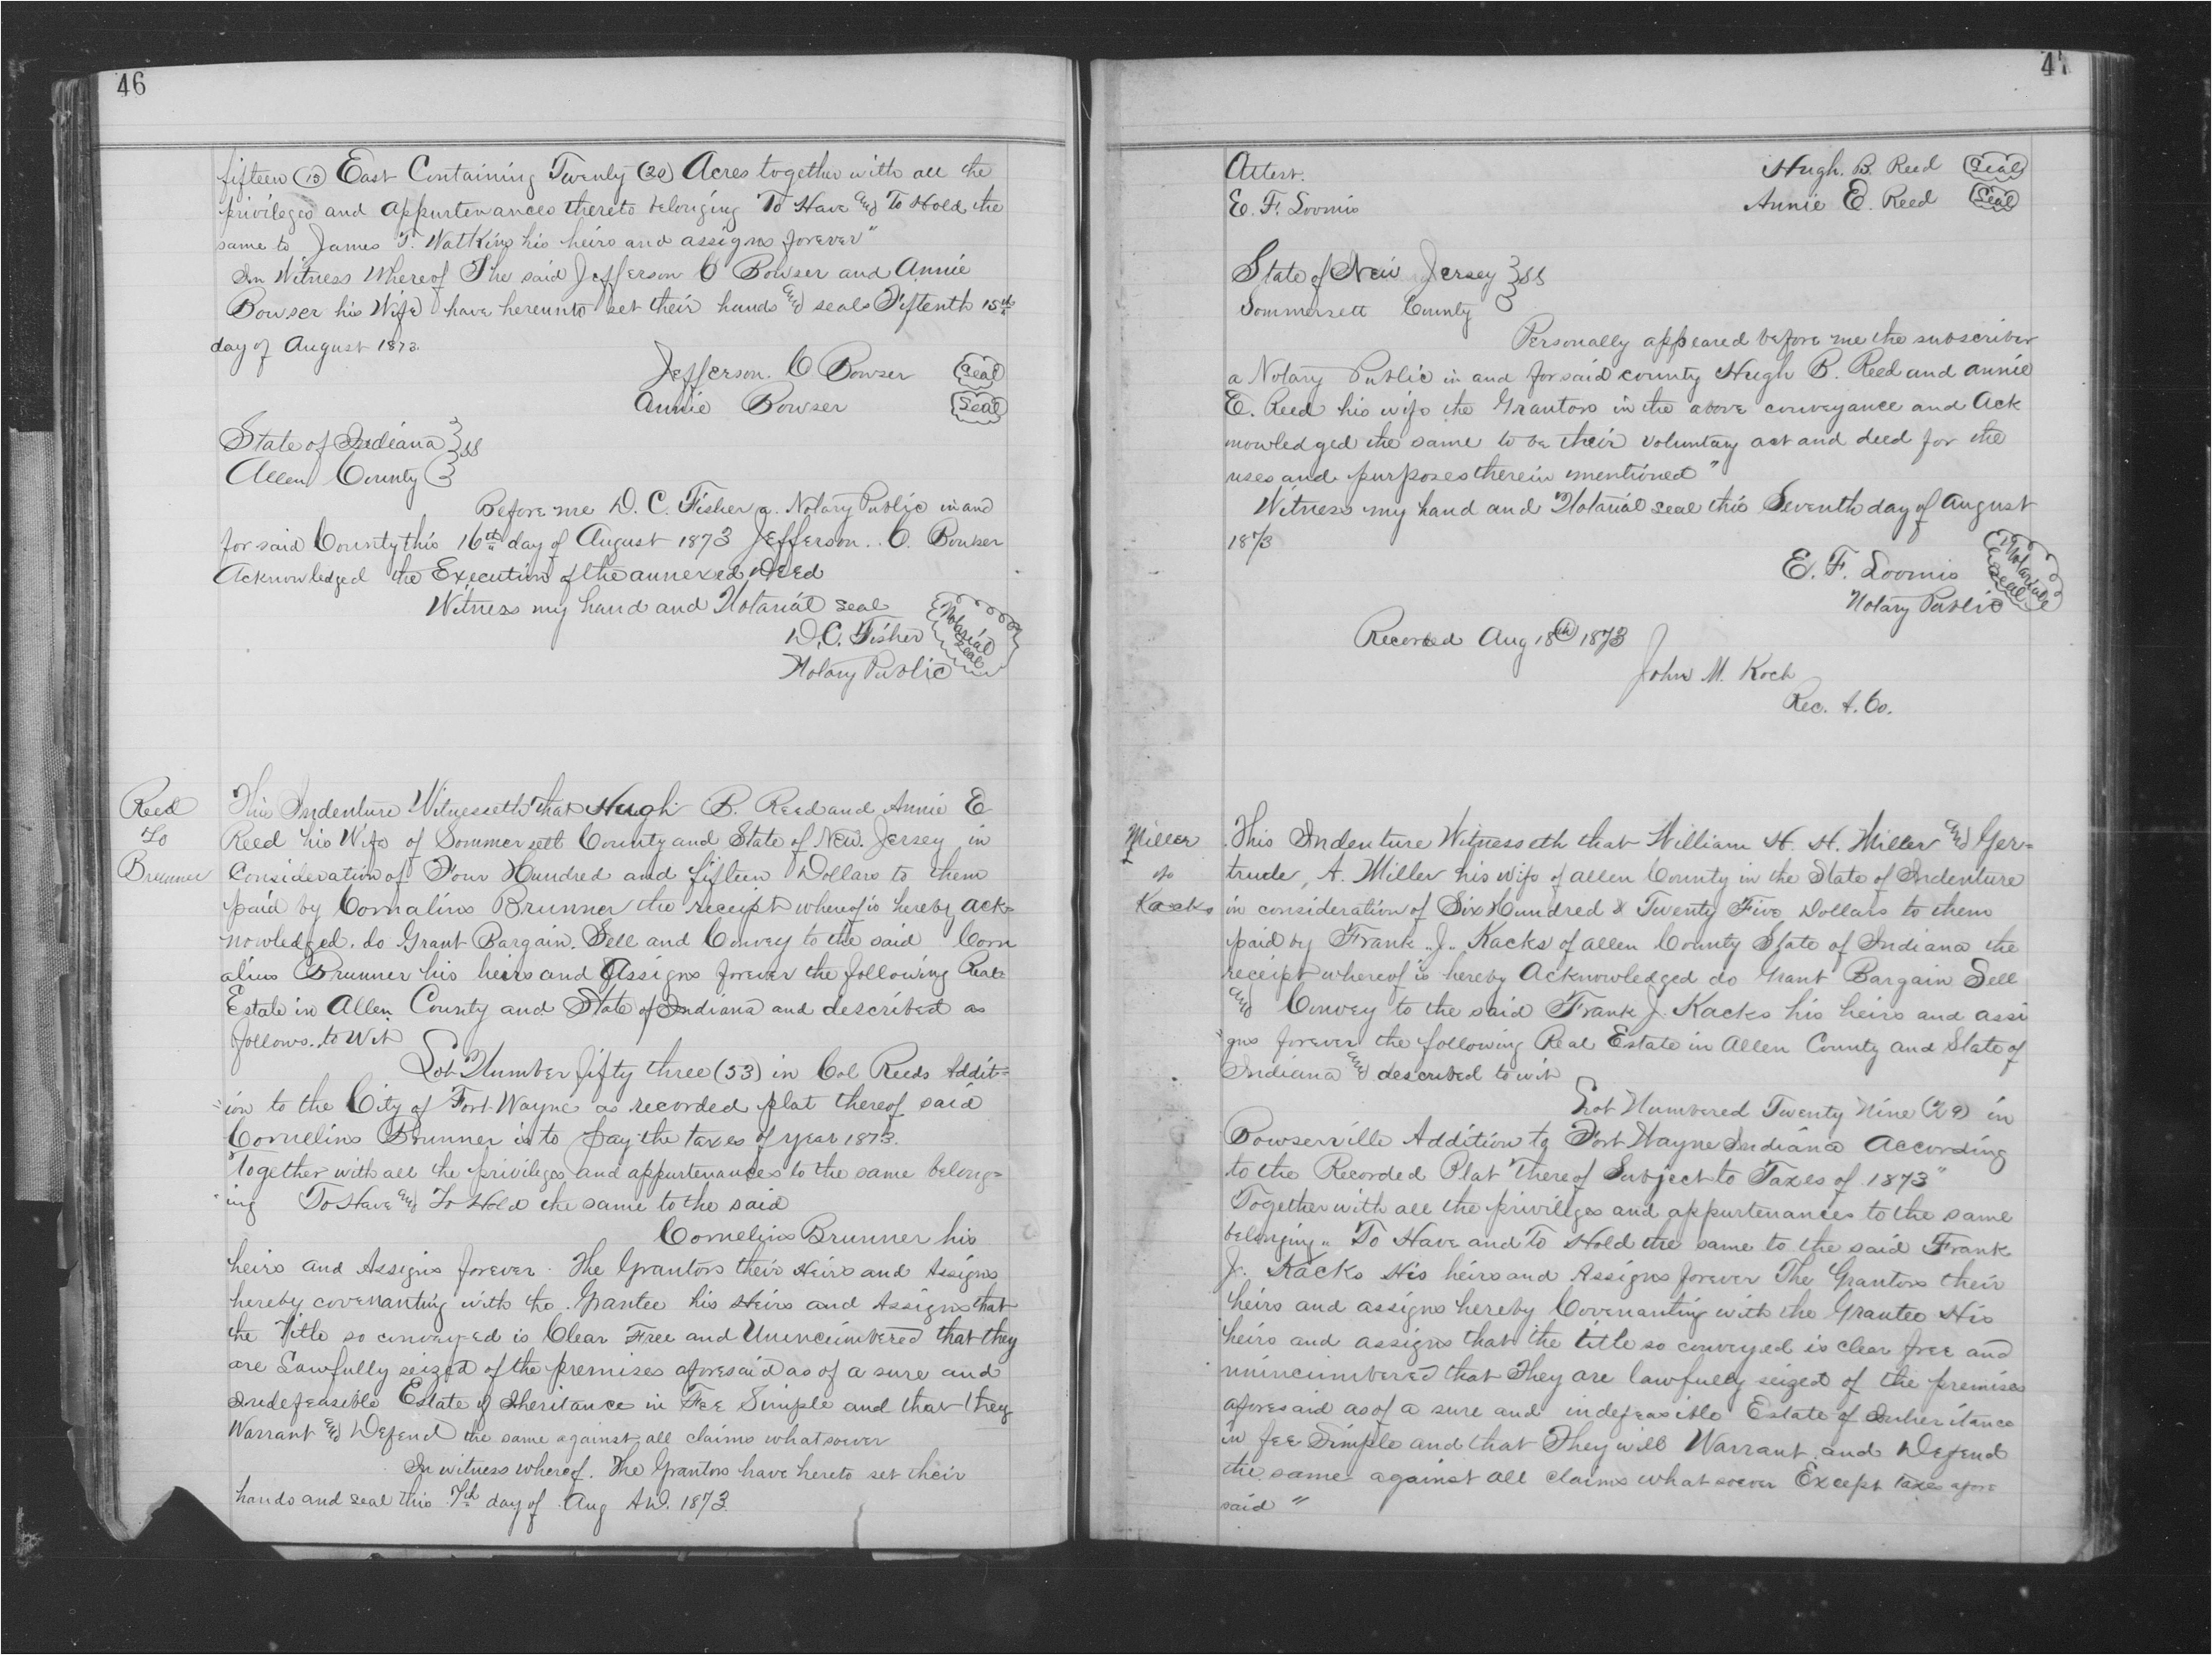 46
fifteen (15) East Containing Twenty (20) Acres together with all the
privileges and appurtenances thereto belonging To Have and To Hold the
same to James T. Watkins his heirs and assigns forever"
In Witness Whereof The said Jefferson C Bowser and Annie
Bowser his Wife have hereunto set their hands and seals Fiftenth 15th
day of August 1873.
Jefferson. C Bowser (Seal)
Annie Bowser (Seal)
State of Indiana } ss
Allen County }
Before me D. C. Fisher a Notary Public in and
for said County this 16th day of August 1873 Jefferson. C. Bowser
Acknowledged the Execution of the annexed Deed
Witness my hand and Notarial seal
D. C. Fisher Notarial Seal
Notary Public
Reed
To
Brunner
This Indenture Witnesseth that Hugh B. Reed and Annie E
Reed his Wife of Sommersett County and State of New. Jersey in
Consideration of Four Hundred and fifteen Dollars to them
paid by Cornalius Brunner the receipt whereof is hereby ack=
nowledged. do Grant Bargain. Sell and Convey to the said Corn
alius Brunner his heirs and Assigns forever the following Real
Estate in Allen County and State of Indiana and described as
follows. to Wit
Lot Number fifty three (53) in Col Reeds Addit=
=ion to the City of Fort Wayne as recorded plat thereof said
Cornelius Brunner is to pay the taxes of year 1873.
Together with all the privileges and appurtenances to the same belong=
ing To Have and To Hold the same to the said
Cornelius Brunner his
heirs and Assigns forever. The Grantors their Heirs and Assigns
hereby covenanting with the Grantee his Heirs and Assigns that
the Title so conveyed is Clear Free and Unincumbered that they
are Lawfully seized of the premises aforesaid as of a sure and
Indefeasible Estate of Iheritance in Fee Simple and that they
Warrant and Defend the same against all claims whatsoever
In witness whereof. The Grantors have hereto set their
hands and seal this 7th day of Aug A.D. 1873
47
Attest. Hugh. B. Reed (Seal)
E. F. Loomis Annie E. Reed (Seal)
State of New Jersey } ss
Sommersett County }
Personally appeared before me the subscriber
a Notary Public in and for said county Hugh B. Reed and annie
E. Reed his wife the Grantors in the above conveyance and Ack
nowledged the same to be their voluntary act and deed for the
uses and purposes therein mentioned"
Witness my hand and Notarial seal this Seventh day of August
1873
E. F. Loomis Notarial Seal
Notary Public
Recorded Aug 18th 1873
John M. Koch
Rec. A. Co.
Miller
to
Kacks
This Indenture Witnesseth that William H. H. Miller and Ger=
trude, A. Miller his wife of allen County in the State of Indenture
in consideration of Six Hundred & Twenty Five Dollars to them
paid by Frank "J" Kacks of allen County State of Indiana the
receipt whereof is hereby Acknowledged do Grant Bargain Sell
and Convey to the said Frank J. Kacks his heirs and assi
=gns forever the following Real Estate in Allen County and State of
Indiana and described to wit
Lot Numbered Twenty Nine (29) in
Bowserville Addition to Fort Wayne Indiana According
to the Recorded Plat Thereof Subject to Taxes of 1873"
Together with all the privileges and appurtenances to the same
belonging" To Have and To Hold the same to the said Frank
J. Kacks His heirs and Assigns forever The Grantors their
heirs and assigns hereby Covenanting with the Grantee His
heirs and assigns that the title so conveyed is clear free and
unincumbered that They are lawfully seized of the premises
aforesaid as of a sure and indefeasible Estate of Inheritance
in fee Simple and that They will Warrant and Defend
the same against all claims whatsoever Except taxes afore
said "